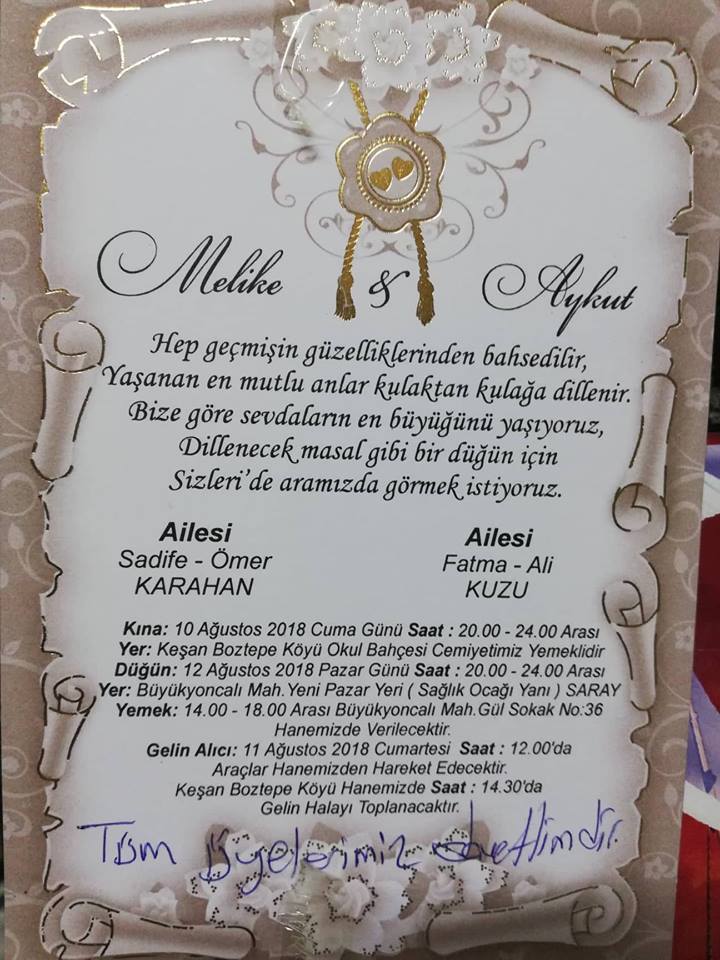 Melike & Aykut
Hep geçmişin güzelliklerinden bahsedilir,
Yaşanan en mutlu anlar kulaktan kulağa dillenir.
Bize göre sevdaların en büyüğünü yaşıyoruz,
Dillenecek masal gibi bir düğün için
Sizleri'de aramızda görmek istiyoruz.
Ailesi
Sadife - Ömer
KARAHAN
Ailesi
Fatma - Ali
KUZU
Kına: 10 Ağustos 2018 Cuma Günü Saat : 20.00 - 24.00 Arası
Yer: Keşan Boztepe Köyü Okul Bahçesi Cemiyetimiz Yemeklidir
Düğün: 12 Ağustos 2018 Pazar Günü Saat : 20.00 - 24.00 Arası
Yer: Büyükyoncalı Mah.Yeni Pazar Yeri ( Sağlık Ocağı Yanı ) SARAY
Yemek: 14.00 - 18.00 Arası Büyükyoncalı Mah.Gül Sokak No:36
Hanemizde Verilecektir.
Gelin Alıcı: 11 Ağustos 2018 Cumartesi Saat : 12.00'da
Araçlar Hanemizden Hareket Edecektir.
Keşan Boztepe Köyü Hanemizde Saat : 14.30'da
Gelin Halayı Toplanacaktır.
Tüm Üyelerimiz